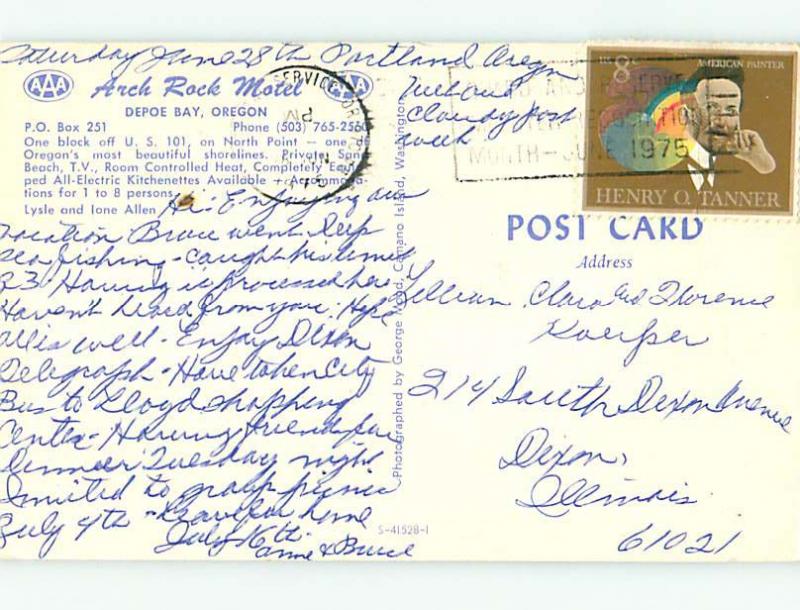 Saturday June 28th Portland Oregn
AAA
Arch Rock Motel
AAA
DEPOE BAY, OREGON
P.O. Box 251 Phone (503) 765-2560
One block off U. S. 101, on North Point — one of
Oregon's most beautiful shorelines. Private
Beach, T.V., Room Controlled Heat, Completely
ped All-Electric Kitchenettes Available —
tions for 1 to 8 persons.
Lysle and Ione Allen
Hi: Enjoying our
vacation Bruce went deep
sea fishing - caught his limit
23. Having it processed here
Haven't heard from you: Hope
all is well - Enjoy Dixon
Telegraph - Have taken City
Bus to Lloyd shopping
Center - Having friends for
dinner Tuesday night
Invited to group picnic
July 4th - Leave for home
July 16th
Anne & Bruce
cloudy past
week
Photographed by George Wood, Camano Island, Washington
S-41528-1
SERVICE OR
PM
MONTH — JUNE 1975
US 8c
AMERICAN PAINTER
HENRY O. TANNER
POST CARD
Address
Lillian, Clara and Florence
Koerper
214 South Dixon Avenue
Dixon,
Illinois
61021